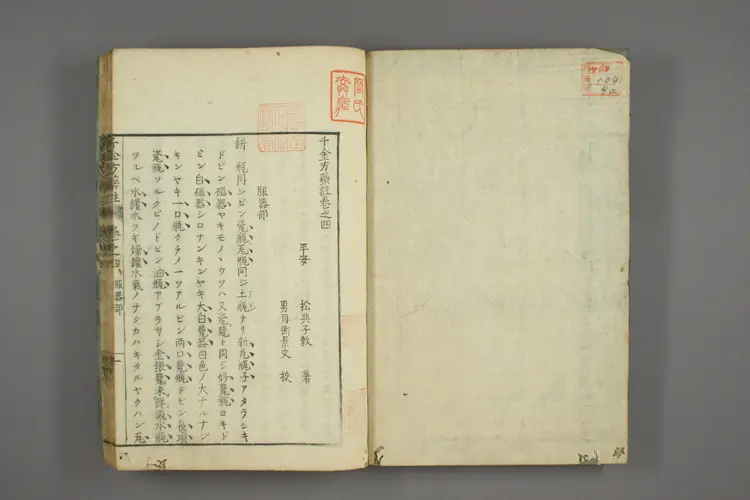 千金方藥註卷之四
平安 松岡子敕 著
男貞衛景文 校
服器部
缾 瓶同シビン瓷瓶瓦瓶同シ土瓶ナリ新瓦瓶子アタラシキ
ドビン磁器ヤキモノヽウツハ又瓷甖ト同シ好甖瓶ヨキド
ビン白磁器シロナンキンヤキ大白甖器白色ノ大ナルナン
キンヤキ一口瓶クチノ一ツアルビン兩口甖瓶ドビン長項
瓷瓶ツルクビノドビン油瓶アブラサシ金銀甖未詳汲水瓶
ツルベ水罐水ツギ燥罐水氣ノナシカハキタルヤクハン瓦
千金方藥註
卷之四
服器部
一